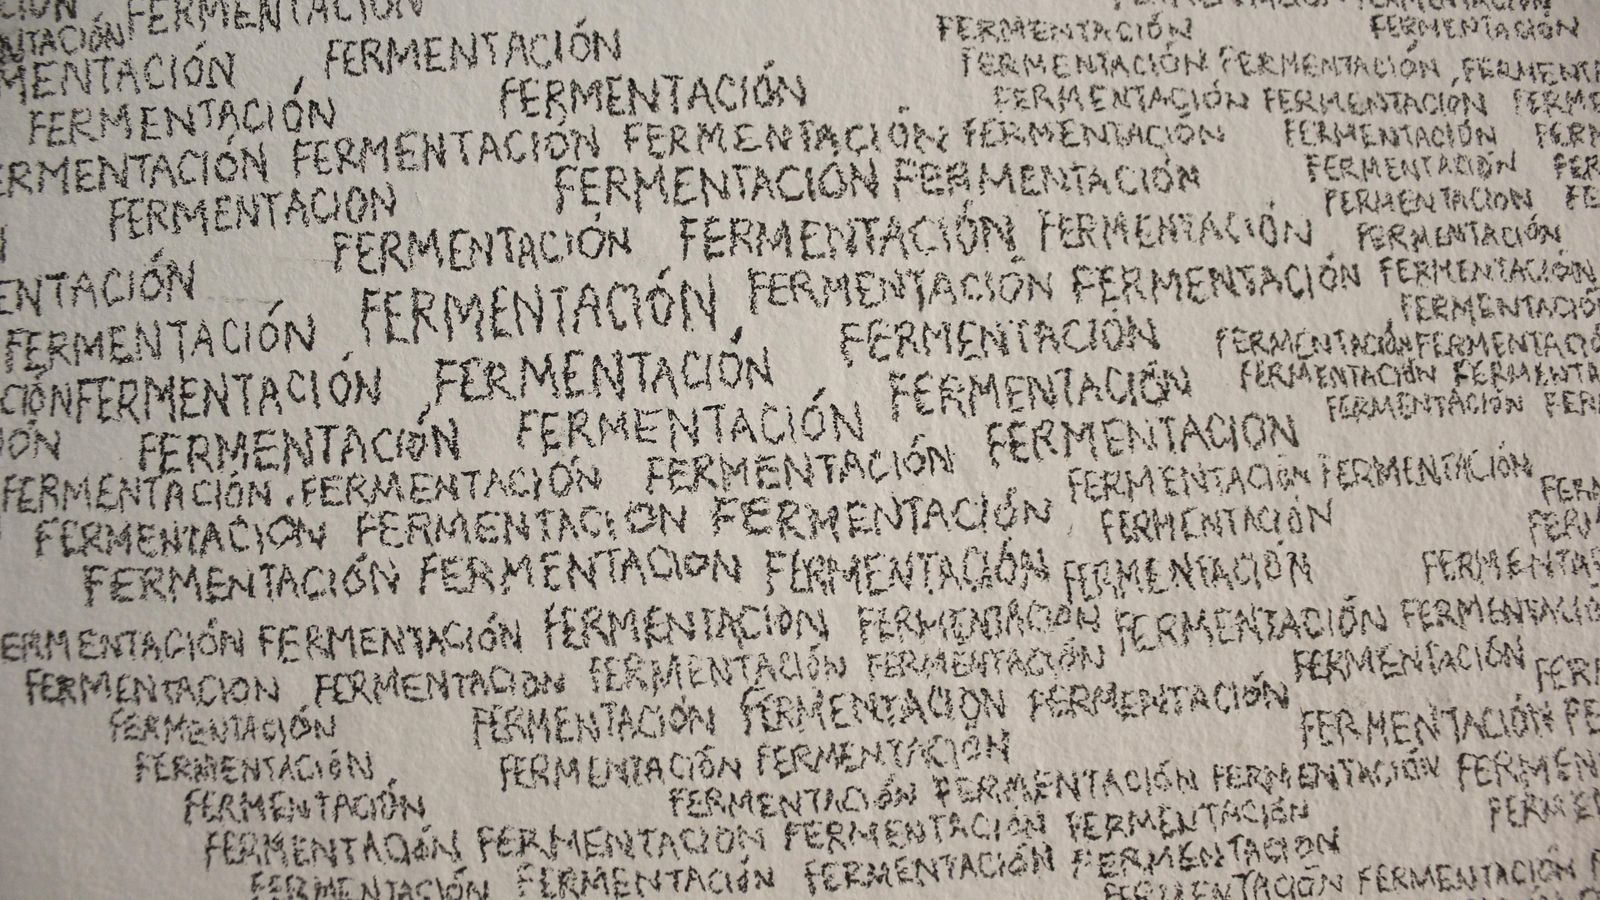 FERMENTACIÓN
FERMENTACIÓN FERMENTACIÓN FERMENTACIÓN
FERMENTACIÓN FERMENTACIÓN FERMENTACIÓN
FERMENTACIÓN FERMENTACIÓN FERMENTACIÓN FERMENTACIÓN
FERMENTACIÓN FERMENTACIÓN FERMENTACIÓN FERMENTACIÓN
FERMENTACIÓN FERMENTACIÓN FERMENTACIÓN
FERMENTACION FERMENTACION
FERMENTACIÓN FERMENTACIÓN FERMENTACIÓN FERMENTACIÓN
FERMENTACIÓN FERMENTACIÓN FERMENTACIÓN FERMENTACIÓN
FERMENTACIÓN FERMENTACIÓN FERMENTACIÓN
FERMENTACIÓN FERMENTACIÓN FERMENTACIÓN FERMENTACIÓN
FERMENTACIÓN FERMENTACIÓN FERMENTACION
FERMENTACIÓN FERMENTACIÓN FERMENTACIÓN FERMENTACIÓN FERMENTACIÓN
FERMENTACION FERMENTACION FERMENTACIÓN FERMENTACIÓN
FERMENTACIÓN FERMENTACION FERMENTACIÓN FERMENTACIÓN
FERMENTACIÓN FERMENTACIÓN FERMENTACION FERMENTACIÓN
FERMENTACION FERMENTACION FERMENTACIÓN FERMENTACIÓN FERMENTACIÓN
FERMENTACIÓN FERMENTACIÓN FERMENTACIÓN FERMENTACIÓN FERMENTACIÓN
FERMENTACIÓN FERMENTACIÓN FERMENTACIÓN
FERMENTACIÓN FERMENTACIÓN FERMENTACIÓN FERMENTACIÓN
FERMENTACIÓN FERMENTACION FERMENTACIÓN FERMENTACIÓN
FERMENTACIÓN FERMENTACIÓN FERMENTACIÓN FERMENTACION
FERMENTACIÓN FERMENTACIÓN